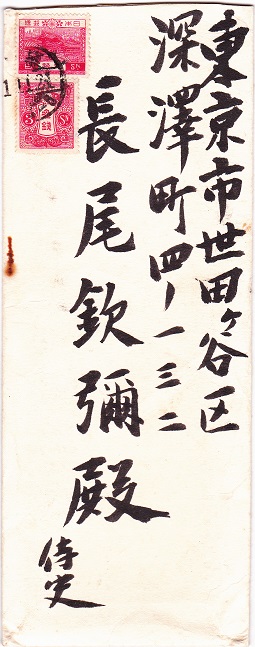 東京市世田ヶ谷区
深澤町四ノ一三二
長尾欽彌殿
侍史